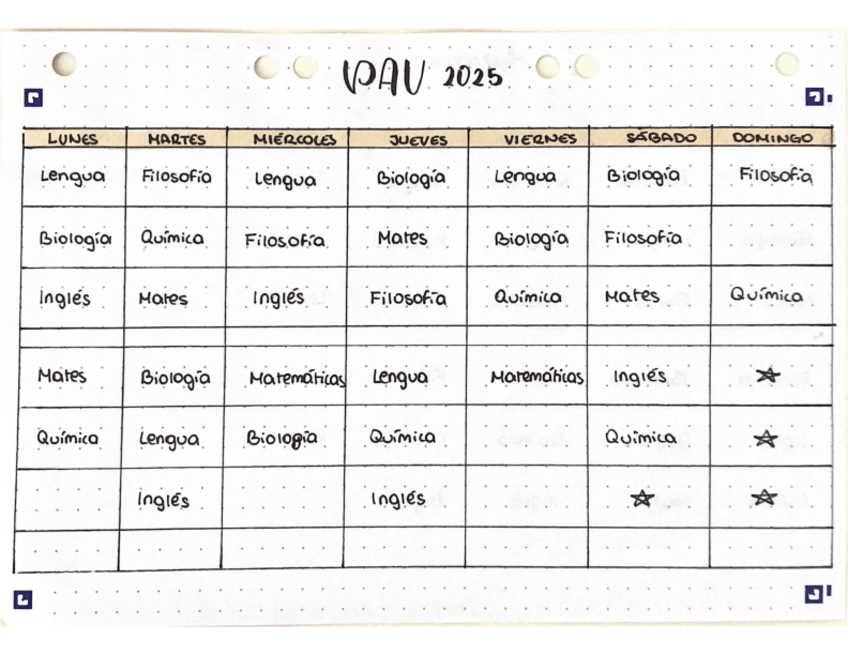 PAU 2025
LUNES MARTES MIÉRCOLES JUEVES VIERNES SÁBADO DOMINGO
Lengua Filosofía Lengua Biología Lengua Biología Filosofía
Biología Química Filosofía Mates Biología Filosofía
Inglés Mates Inglés Filosofía Química Mates Química
Mates Biología Matemáticas Lengua Matemáticas Inglés
Química Lengua Biología Química Química
Inglés Inglés